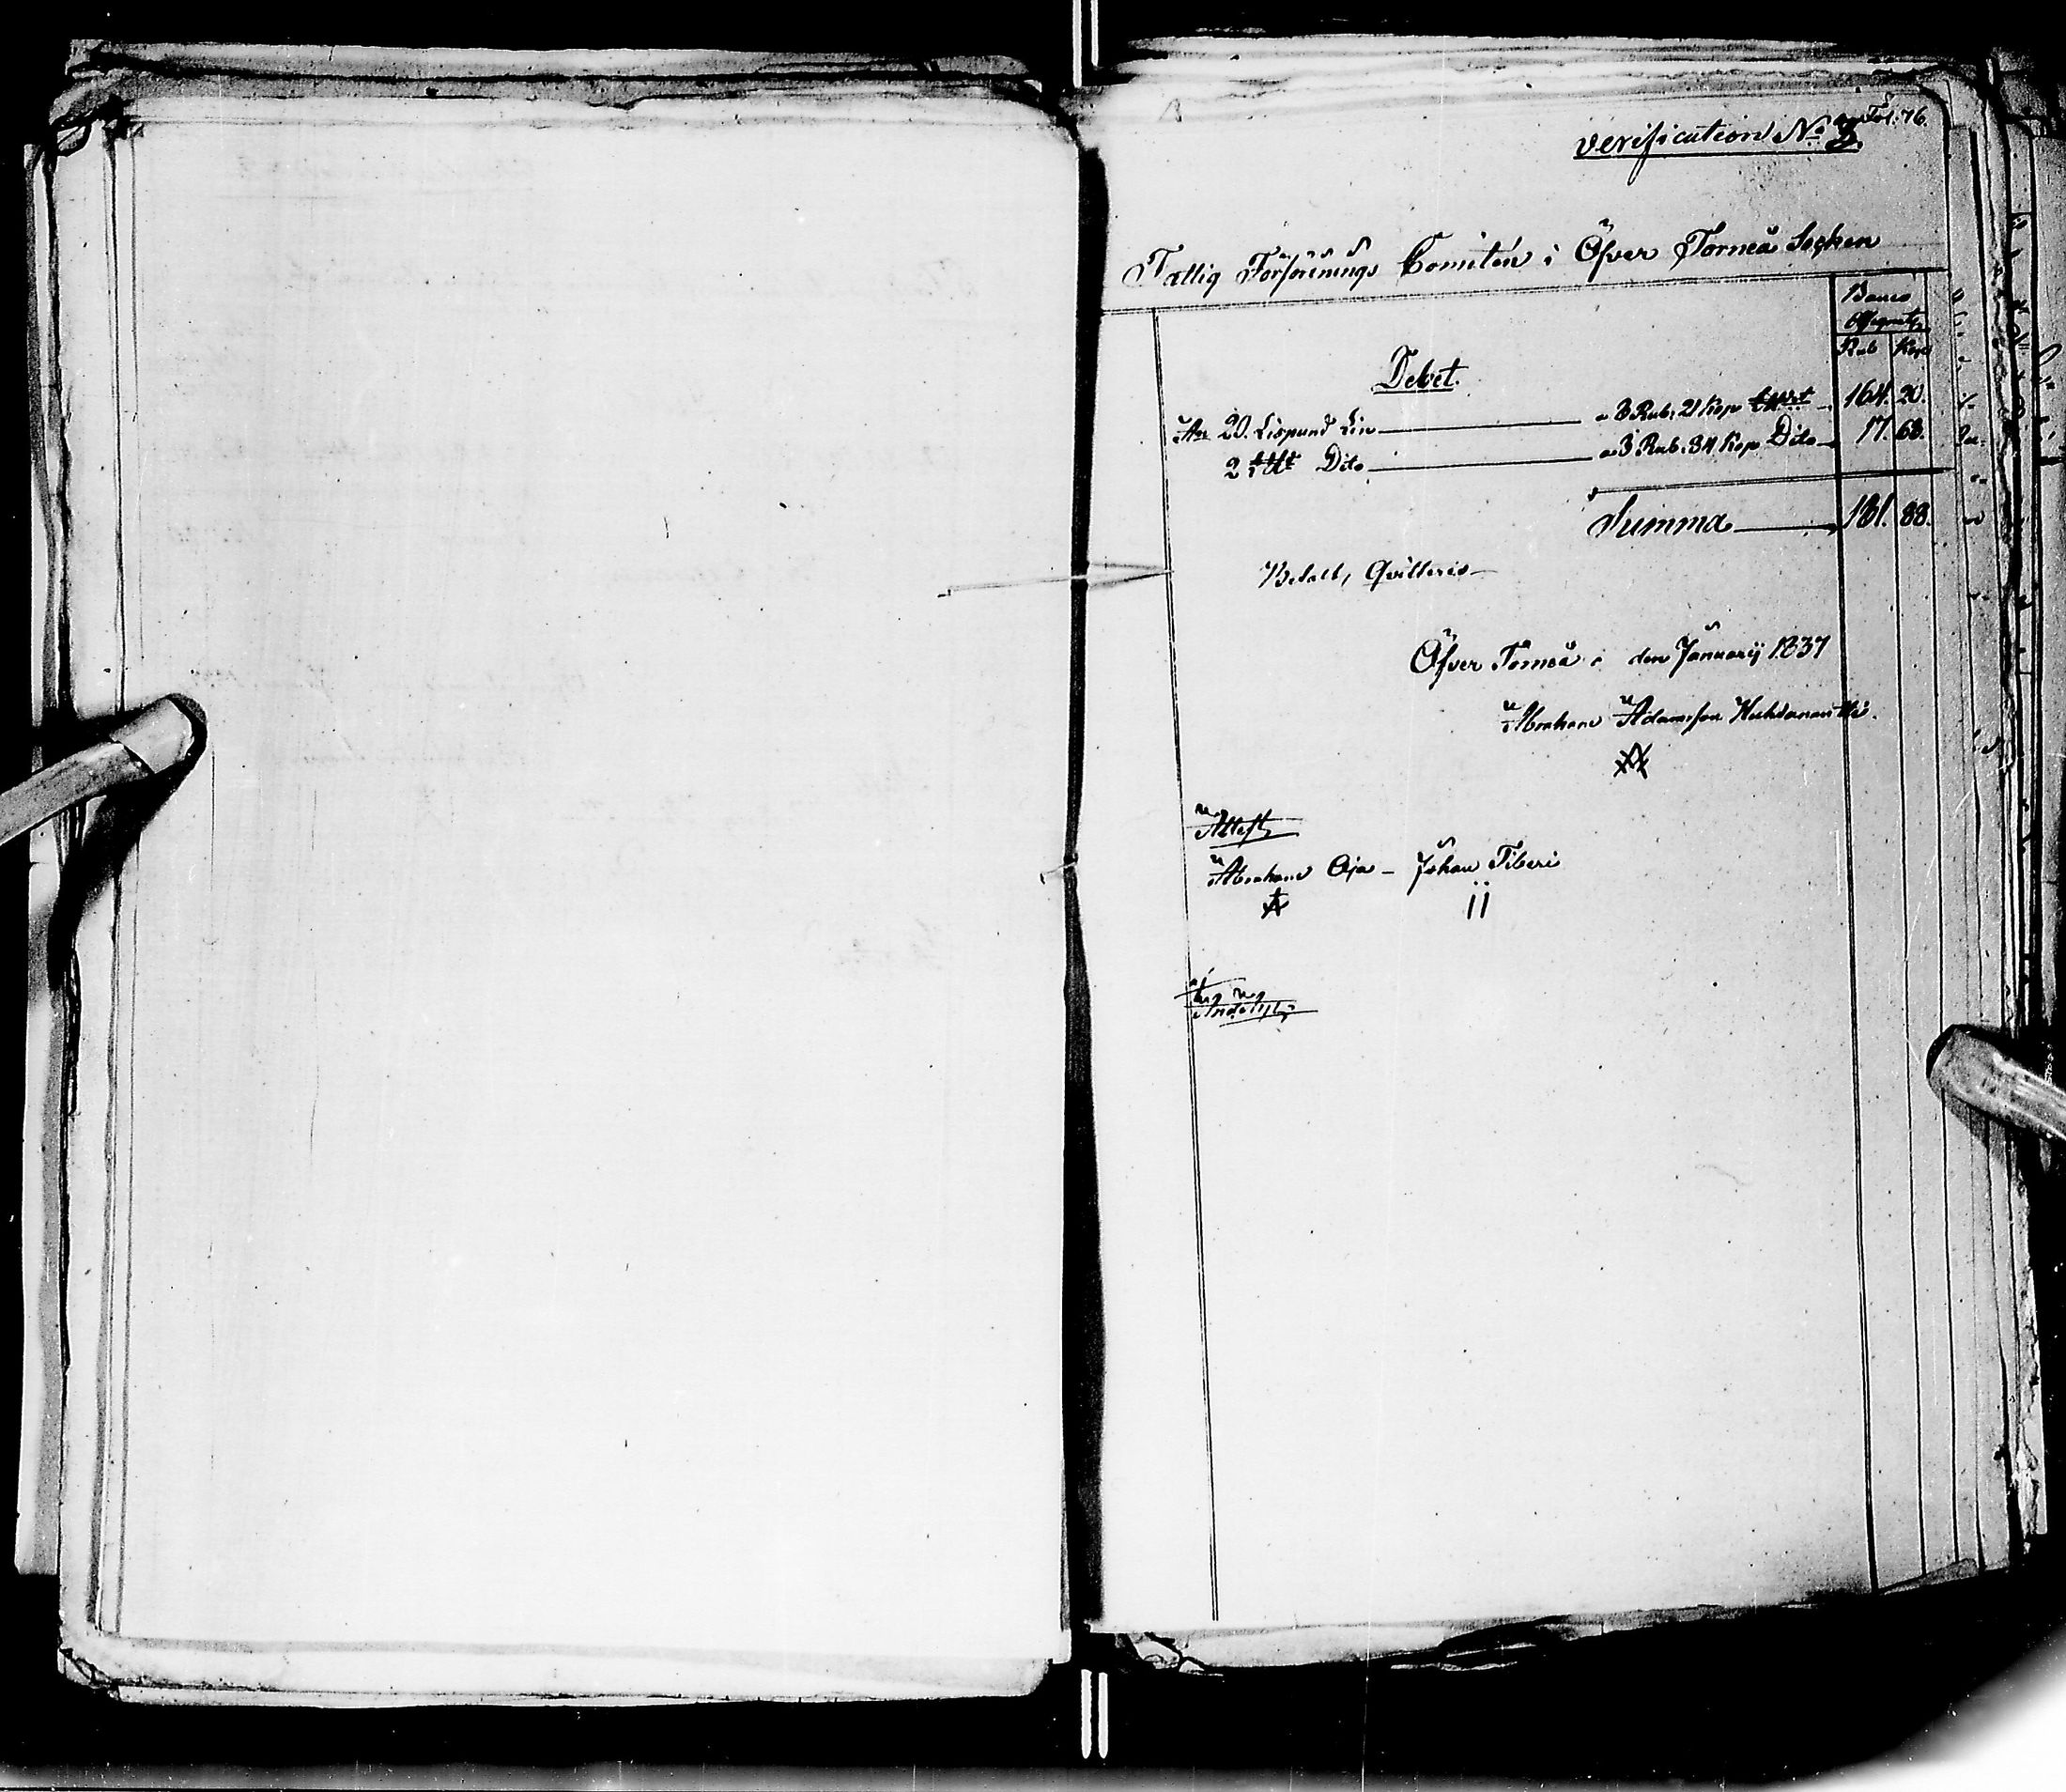 Fol. 76.
verification No 2.
Fattig Försörjnings Comitén i Öfver Torneå Socken
Banco
Assignat.
Rub Kop
Debet.
An 20. Lispund Lin — a 8 Rub. 21 Kop — 164. 20.
2 Dito — a 8 Rub. 84 Kop Dito — 17. 68.
Summa — 181. 88.
Betalt, Qvitteras —
Öfver Torneå i den Januarij 1837
Abraham Adamsson
Attest,
Abraham Oja — Johan Tiberi